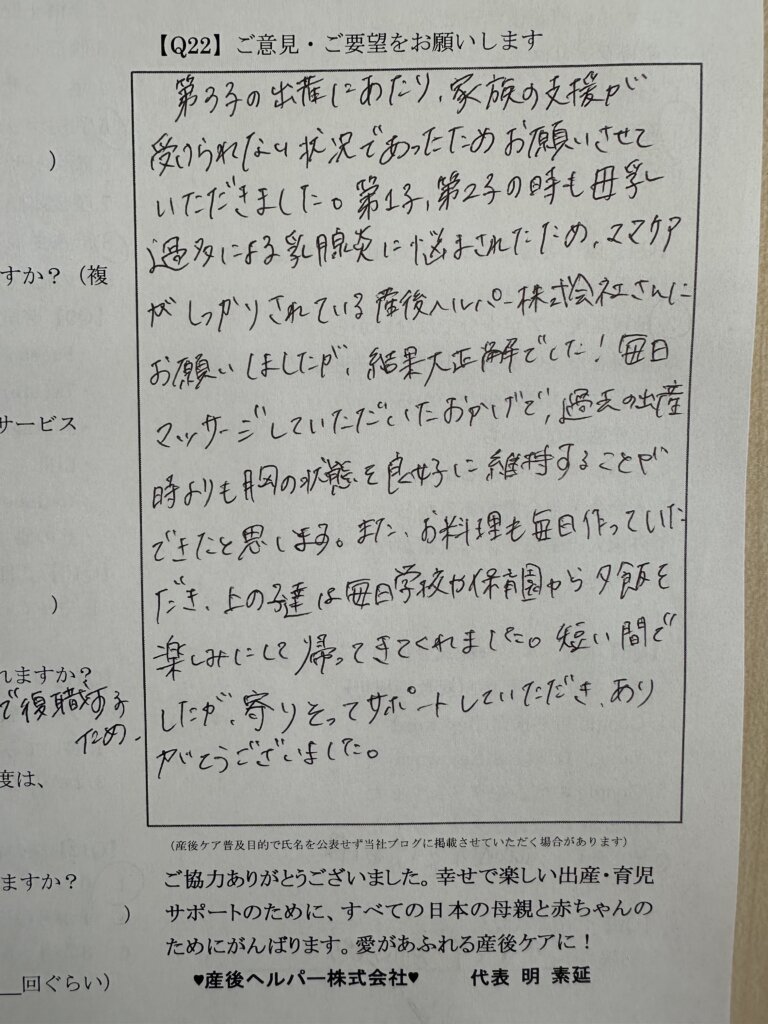 【Q22】ご意見・ご要望をお願いします
第3子の出産にあたり、家族の支援が
受けられない状況であったためお願いさせて
いただきました。第1子,第2子の時も母乳
過多による乳腺炎に悩まされたため、ママケア
がしっかりされている産後ヘルパー株式会社さんに
お願いしましたが、結果大正解でした！毎日
マッサージしていただいたおかげで、過去の出産
時よりも胸の状態を良好に維持することが
できたと思います。また、お料理も毎日作っていた
だき、上の子達は毎日学校や保育園から夕飯を
楽しみにして帰ってきてくれました。短い間で
したが、寄りそってサポートしていただき、あり
がとうございました。
（産後ケア普及目的で氏名を公表せず当社ブログに掲載させていただく場合があります）
ご協力ありがとうございました。幸せで楽しい出産・育児
サポートのために、すべての日本の母親と赤ちゃんの
ためにがんばります。愛があふれる産後ケアに！
♥産後ヘルパー株式会社♥ 代表 明 素延
）
すか？（複
サービス
）
れますか？
で復職する
ため.
度は、
ますか？
）
回ぐらい）